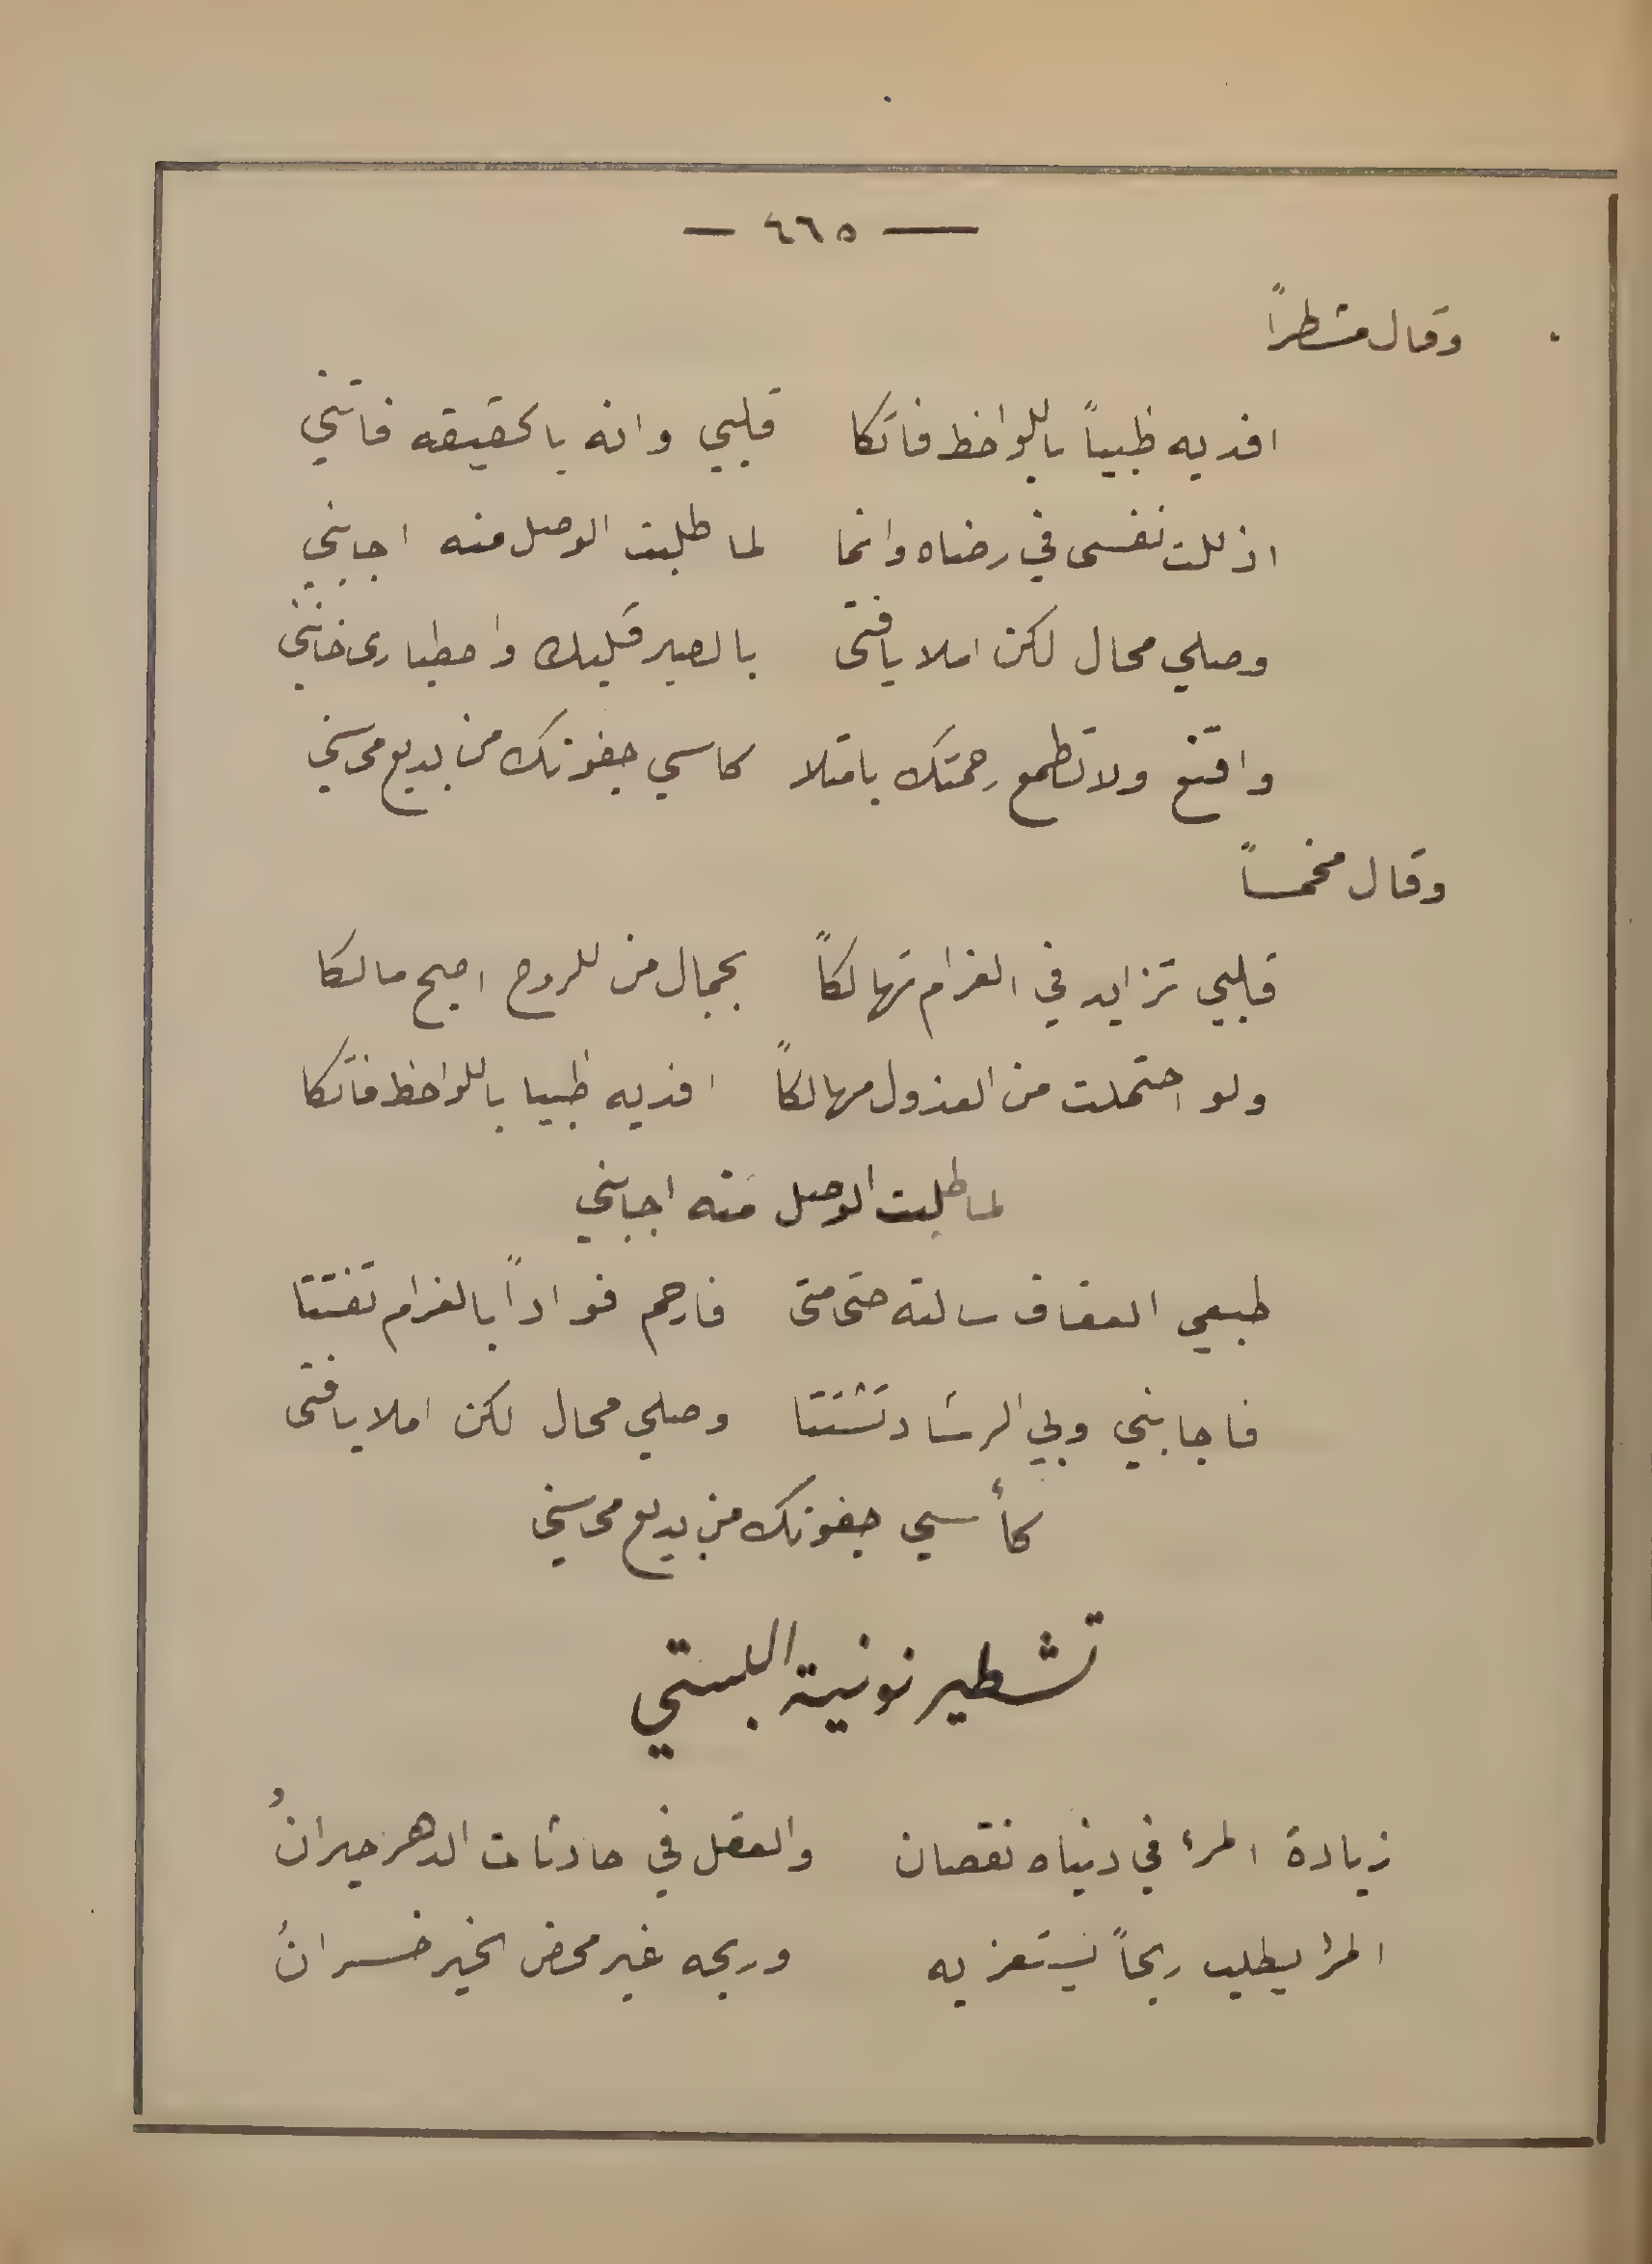 — ٤٦٥ —
وقال مشطراً
افديه ظبياً باللواحظ فاتكا قلبي وانه بالحقيقه فاتني
اذللت نفسي في رضاه وانما لما طلبت الوصل منه اجابني
وصلي محال لكن املا يافتى بالصبر قلبك واصطباري خانني
واقنع ولا تطمع رحمتك بامتلا كاسي جفونك من بديع محاسني
وقال مخمساً
قلبي تزايد في الغرام تهالكاً بجمال من للروح اصبح مالكا
ولو احتملت من العذول مهالكاً افديه ظبيا باللواحظ فاتكا
لما طلبت الوصل منه اجابني
طبعي العفاف سالته حتى متى فارحم فواداً بالغرام تفتتا
فاجابني وبي الرشاد تشتتا وصلي محال لكن املا يافتى
كأسي جفونك من بديع محاسني
تشطير نونية البستي
زيادة المرء في دنياه نقصان والعقل في حادثات الدهر حيرانُ
المرأ يطلب ربحاً يستعز به وربحه غير محض الخير خسرانُ